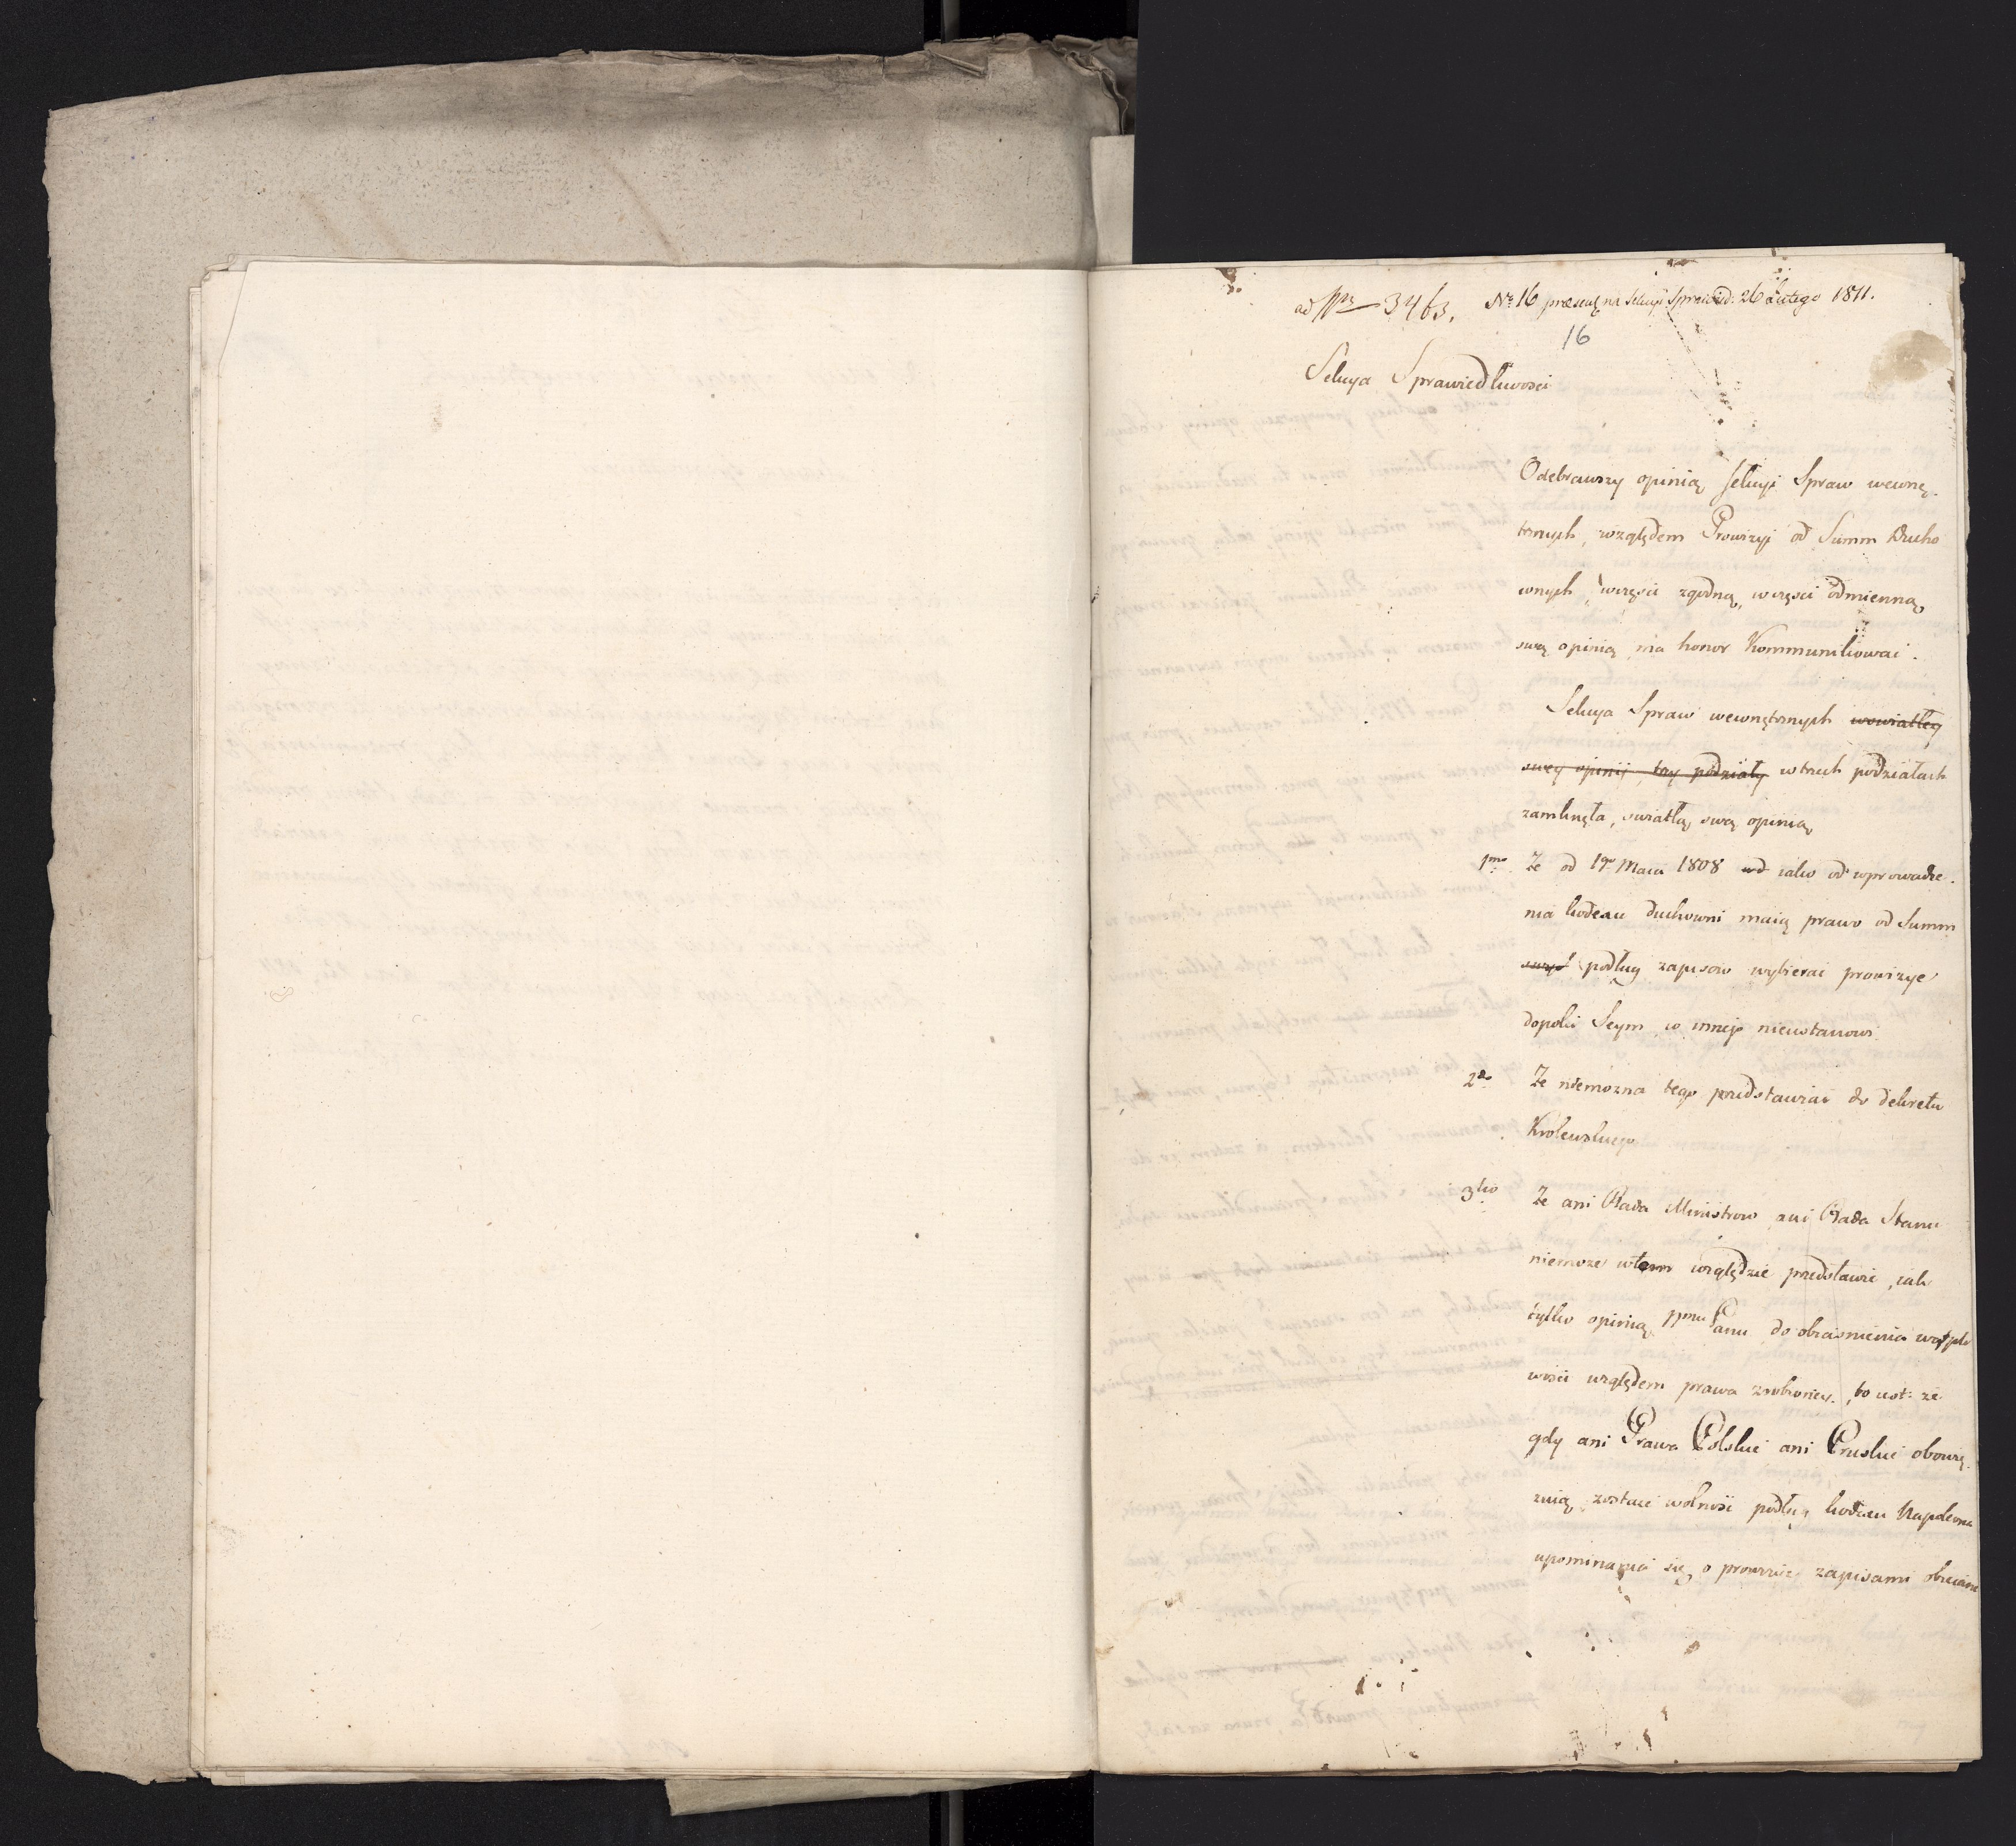 ad N 3463. No 16 præsent na Sekcyi Sprawied: 26 Lutego 1811.
16
Sekcya Sprawiedliwosci
Odebrawszy opinią Sekcyi Spraw wewnę-
trznych, względem Prowizyi od Summ Ducho
wnych, wczęsci zgodną, wczęsci odmienną
swą opinią ma honor Kommunikowac.
Sekcya Spraw wewnętrznych wswiatłey
swey opinij, trzy podziały w trzech podziałach
zamknęła, swiatłą swą opinią
1mo Ze od 1go Maia 1808 od iako od wprowadze-
nia kodexu duchowni maią prawo od Summ
swych podług zapisow wybierac prowizye
dopoki Seym co innego nieustanowi
2do Ze niemozna tego przedstawiac do dekretu
Krolewskiego
3tio Ze ani Rada Ministrow ani Rada Stanu
niemoze wtem względzie przedstawic, iak
tylko opinią Panu do obiasnienia wątpli
wosci względem prawa zrobioney, to iest: ze
gdy ani Prawa Polskie ani Pruskie obowię-
zuią, zostaie wolnosc podług kodexu Napoleona
upominania się, o prowizie zapisami obiecane